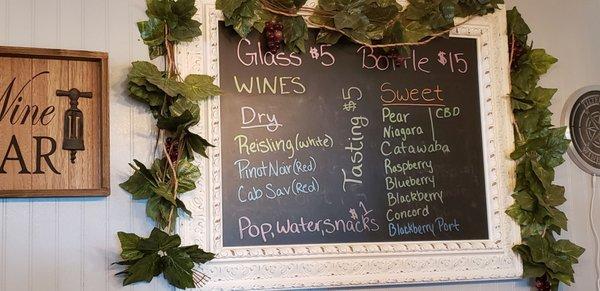 Wine
BAR
Glass $5 Bottle $15
WINES
Dry
Reisling (white)
Pinot Noir (Red)
Cab Sav (Red)
Tasting $5
Sweet
Pear CBD
Niagara
Catawaba
Raspberry
Blueberry
Blackberry
Concord
Blackberry Port
Pop, Water, Snacks $1